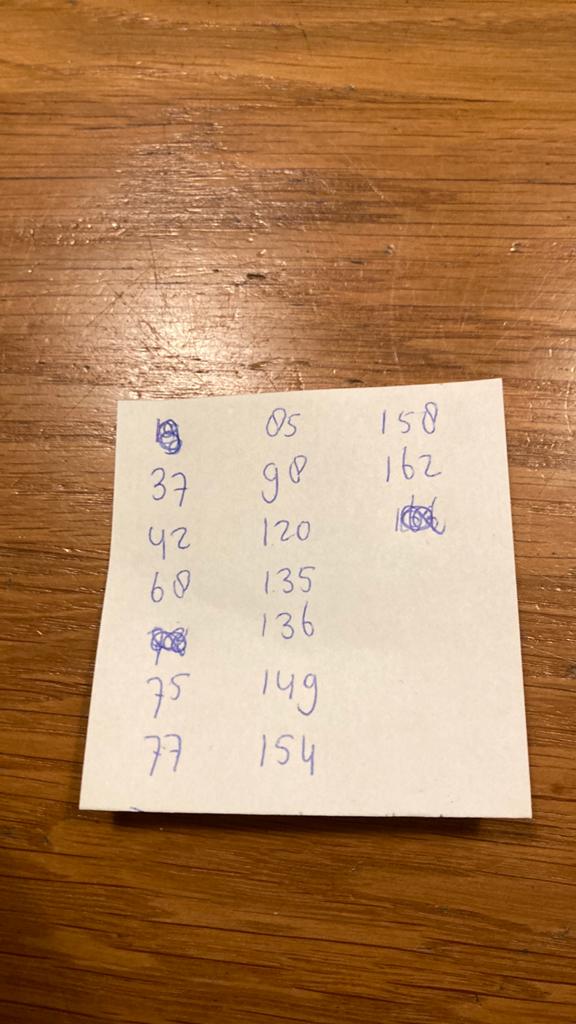 37
42
68
75
77
85
98
120
135
136
149
154
158
162